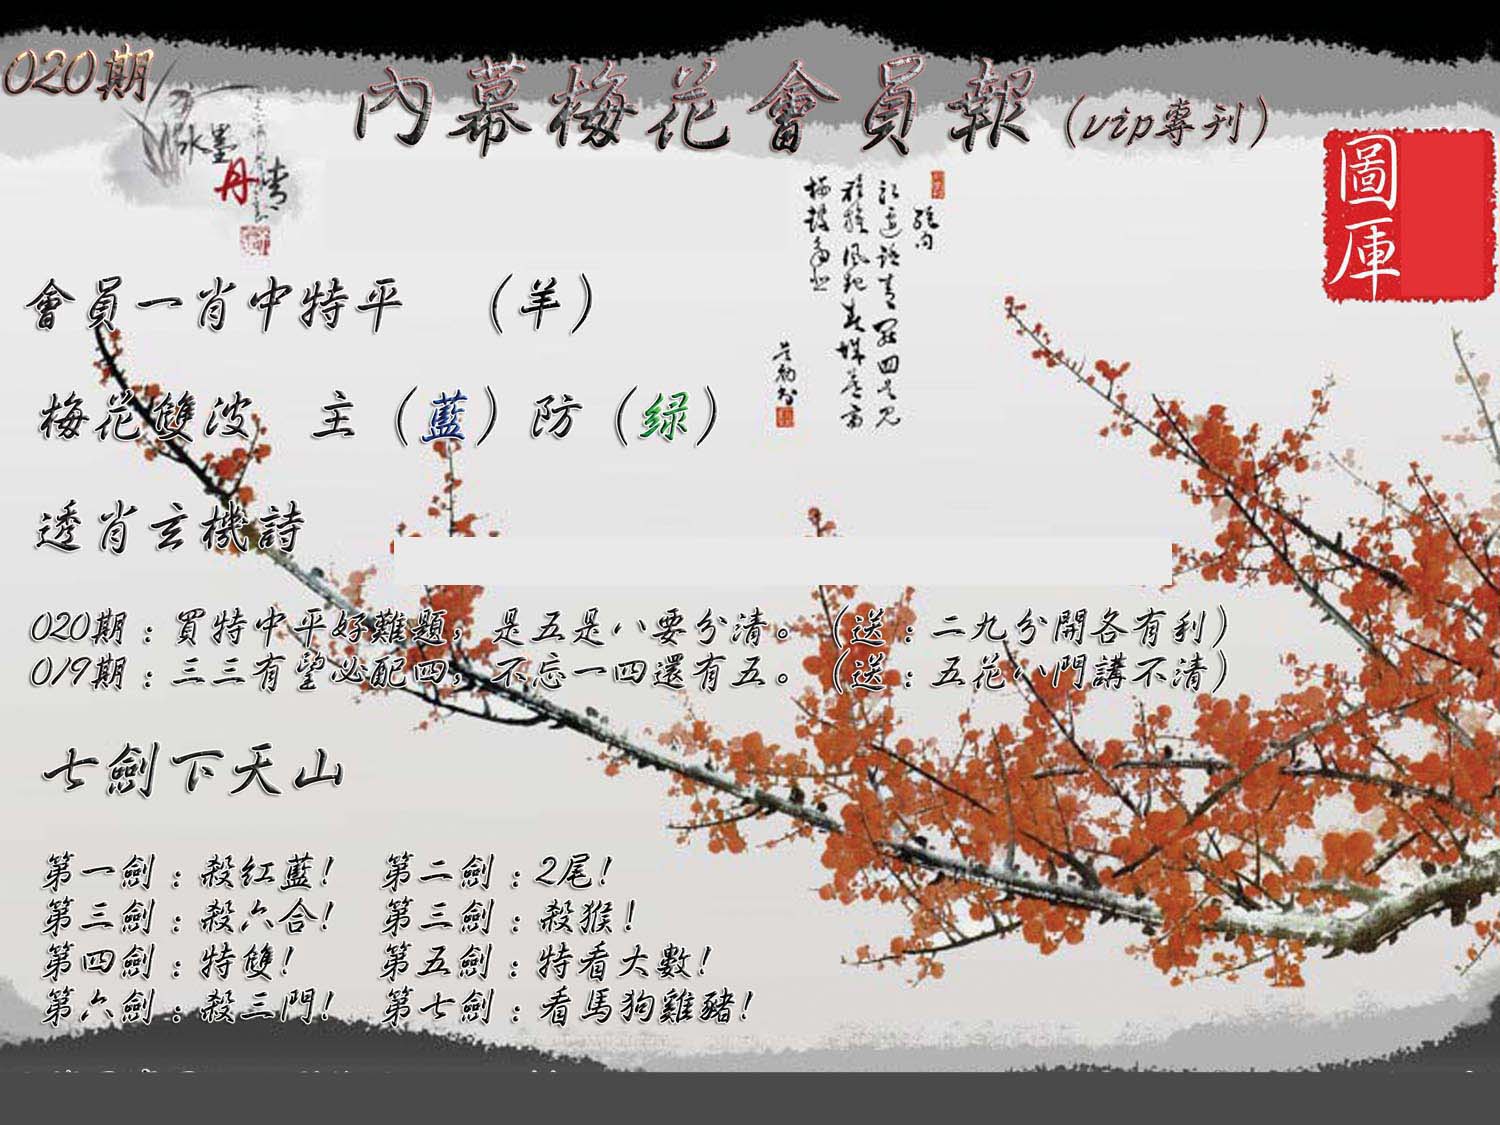 020期
內幕梅花會員報（vip專刊）
水墨
丹青
圖庫
會員一肖中特平　（羊）
梅花雙波　主（藍）防（绿）
透肖玄機詩
020期：買特中平好難題，是五是八要分清。（送：二九分開各有利）
019期：三三有望必配四，不忘一四還有五。（送：五花八門講不清）
七劍下天山
第一劍：殺红藍！　第二劍：2尾！
第三劍：殺六合！　第三劍：殺猴！
第四劍：特雙！　第五劍：特看大數！
第六劍：殺三門！　第七劍：看馬狗雞豬！